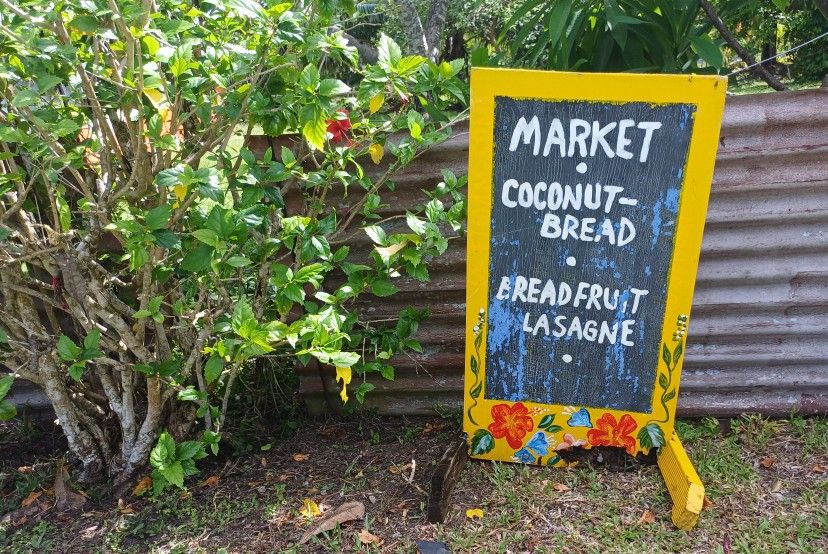 MARKET
COCONUT-
BREAD
BREADFRUIT
LASAGNE